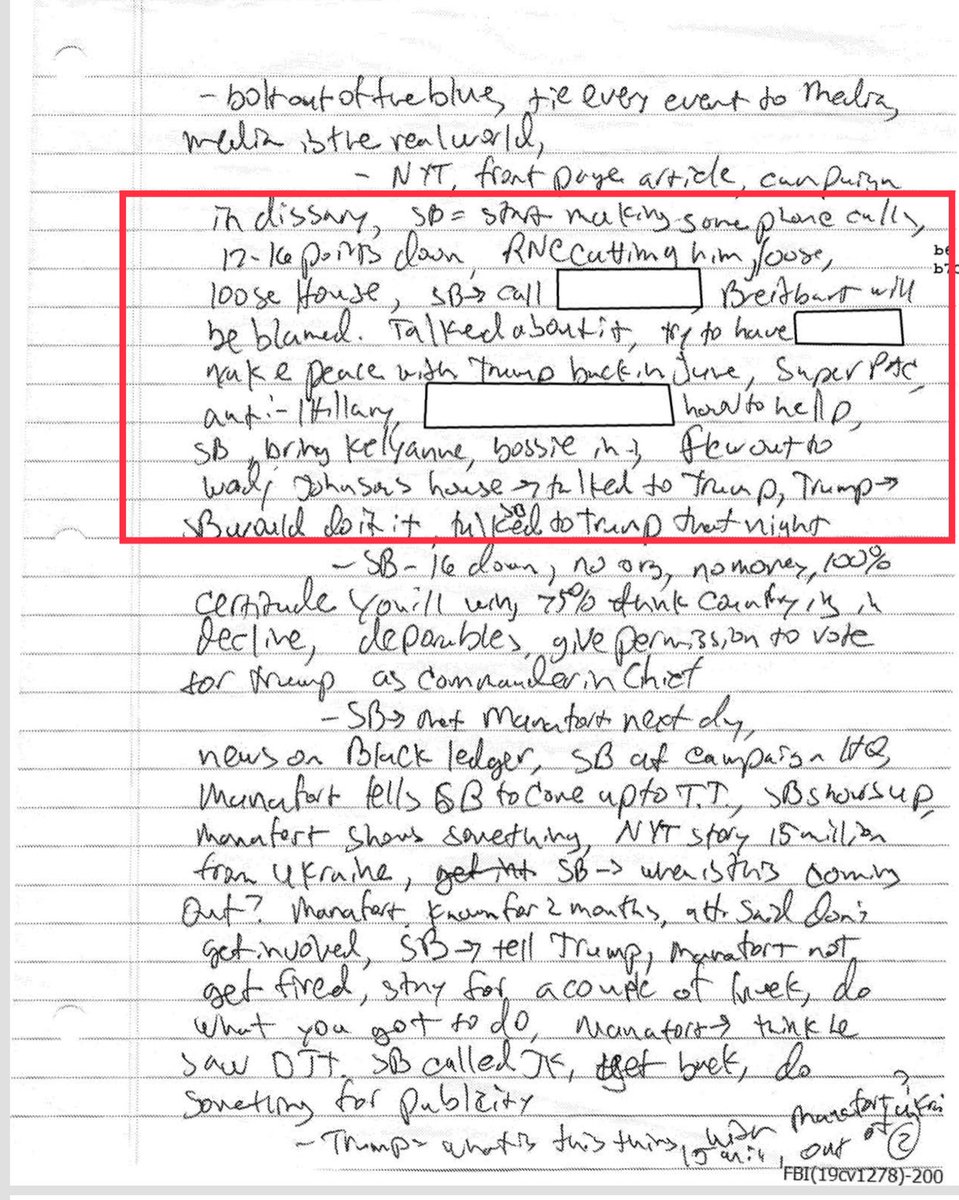 - bolt out of the blue, tie every event to Media,
media is the real world,
- NYT, front page article, campaign
in dissary, SB = start making some phone calls,
12-16 points down, RNC cutting him loose,
b6
b7C
loose House, SB → call Breitbart will
be blamed. Talked about it, try to have
make peace with Trump back in June, Super PAC,
anti-Hillary, how to help,
SB, bring Kellyanne, bossie in, flew out to
woody Johnson's house → talked to Trump, Trump →
SB would do it, talked to Trump that night
SB
- SB - 16 down, no org, no money, 100%
certitude you'll win, 75% think country is in
Decline, deporables, give permission to vote
for Trump as Commander in Chief
- SB → met Manafort next dy,
news on Black ledger, SB at campaign HQ
Manafort tells SB to come up to T.T., SB shows up,
Manafort shows something, NYT story 15 million
from Ukraine, SB → when is this coming
out? Manafort, known for 2 months, said don't
get involed, SB → tell Trump, Manafort not
get fired, stay for a couple of week, do
what you got to do, Manafort → think he
saw DJT. SB called JK, get back, do
something for publicity
- Trump = what is this thing, with Manafort
15 mil, out of
2
FBI(19cv1278)-200